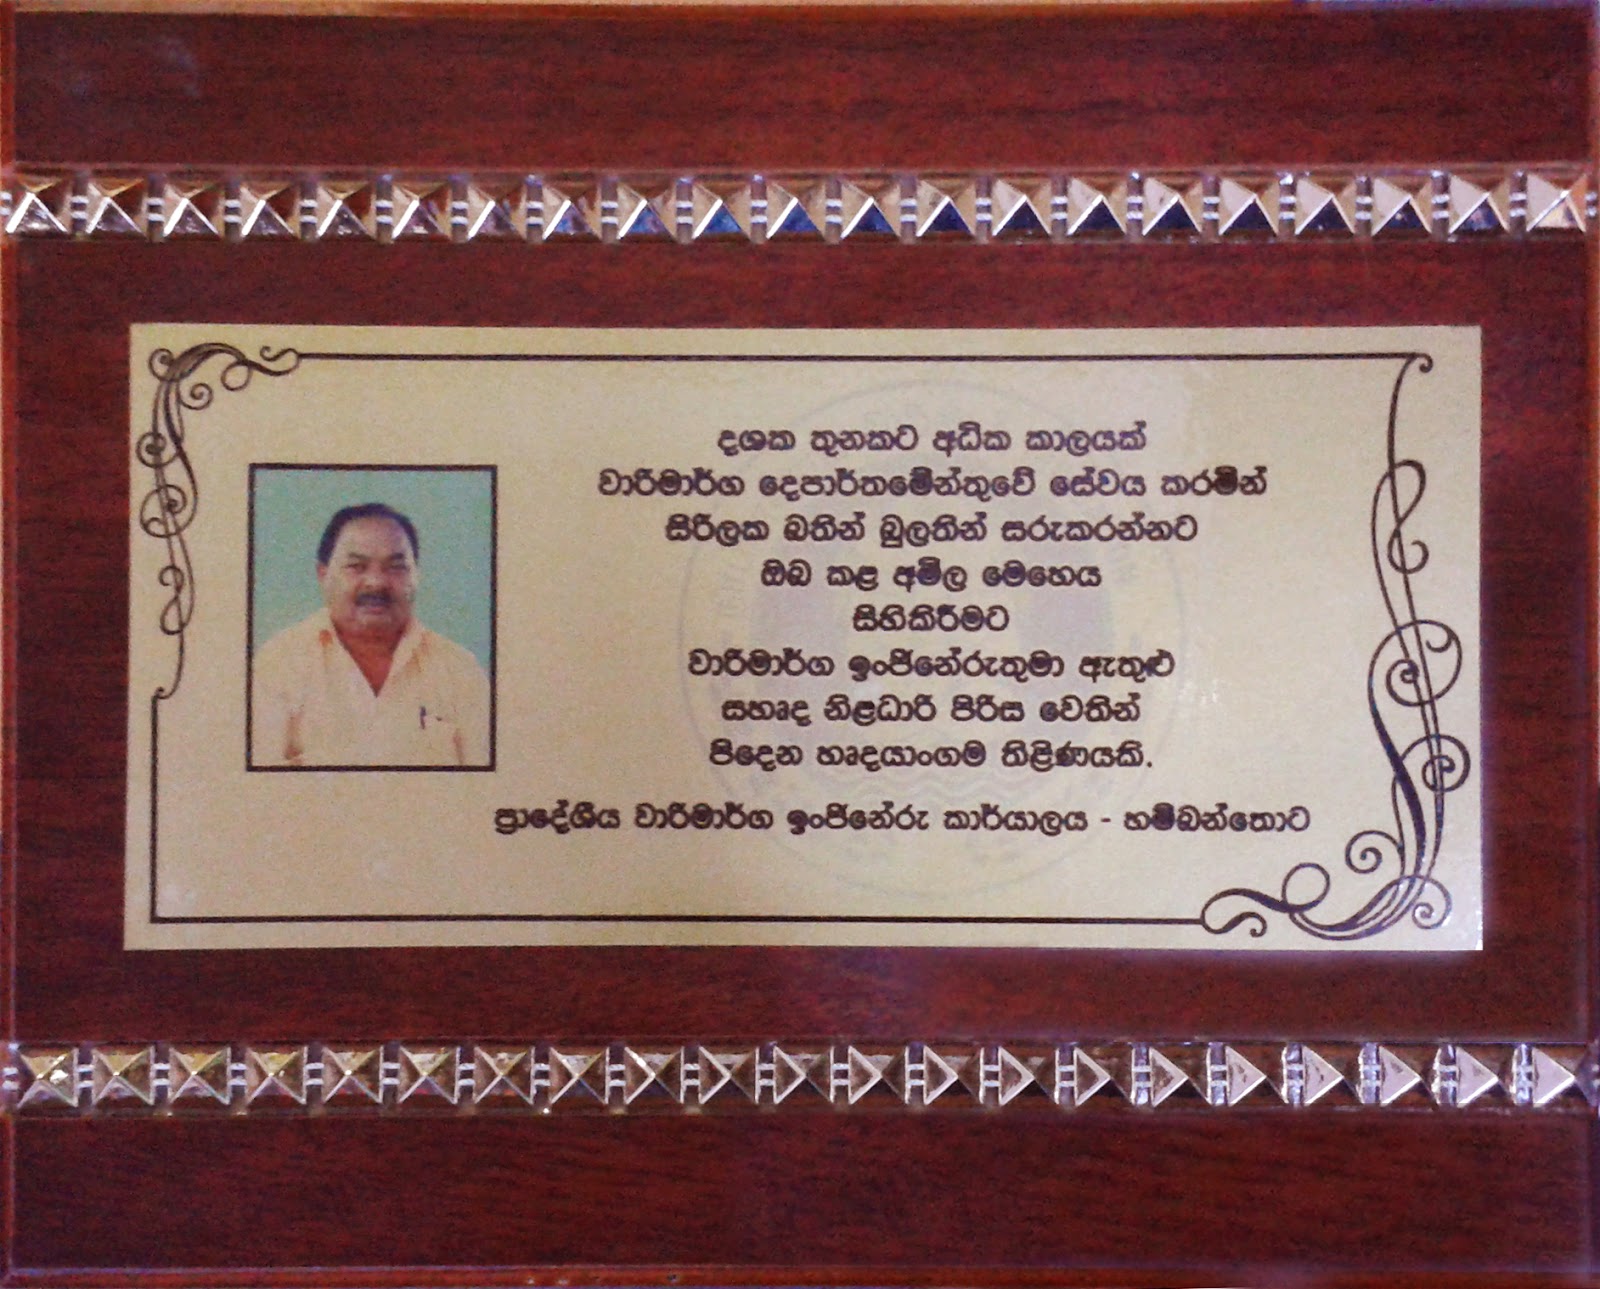 දශක තුනකට අධික කාලයක්
වාරිමාර්ග දෙපාර්තමේන්තුවේ සේවය කරමින්
සිරිලක බතින් බුලතින් සරුකරන්නට
ඔබ කළ අමිල මෙහෙය
සිහිකිරීමට
වාරිමාර්ග ඉංජිනේරුතුමා ඇතුළු
සහෘද නිළධාරී පිරිස වෙතින්
පිදෙන හෘදයාංගම තිළිණයකි.
ප්‍රාදේශීය වාරිමාර්ග ඉංජිනේරු කාර්යාලය - හම්බන්තොට